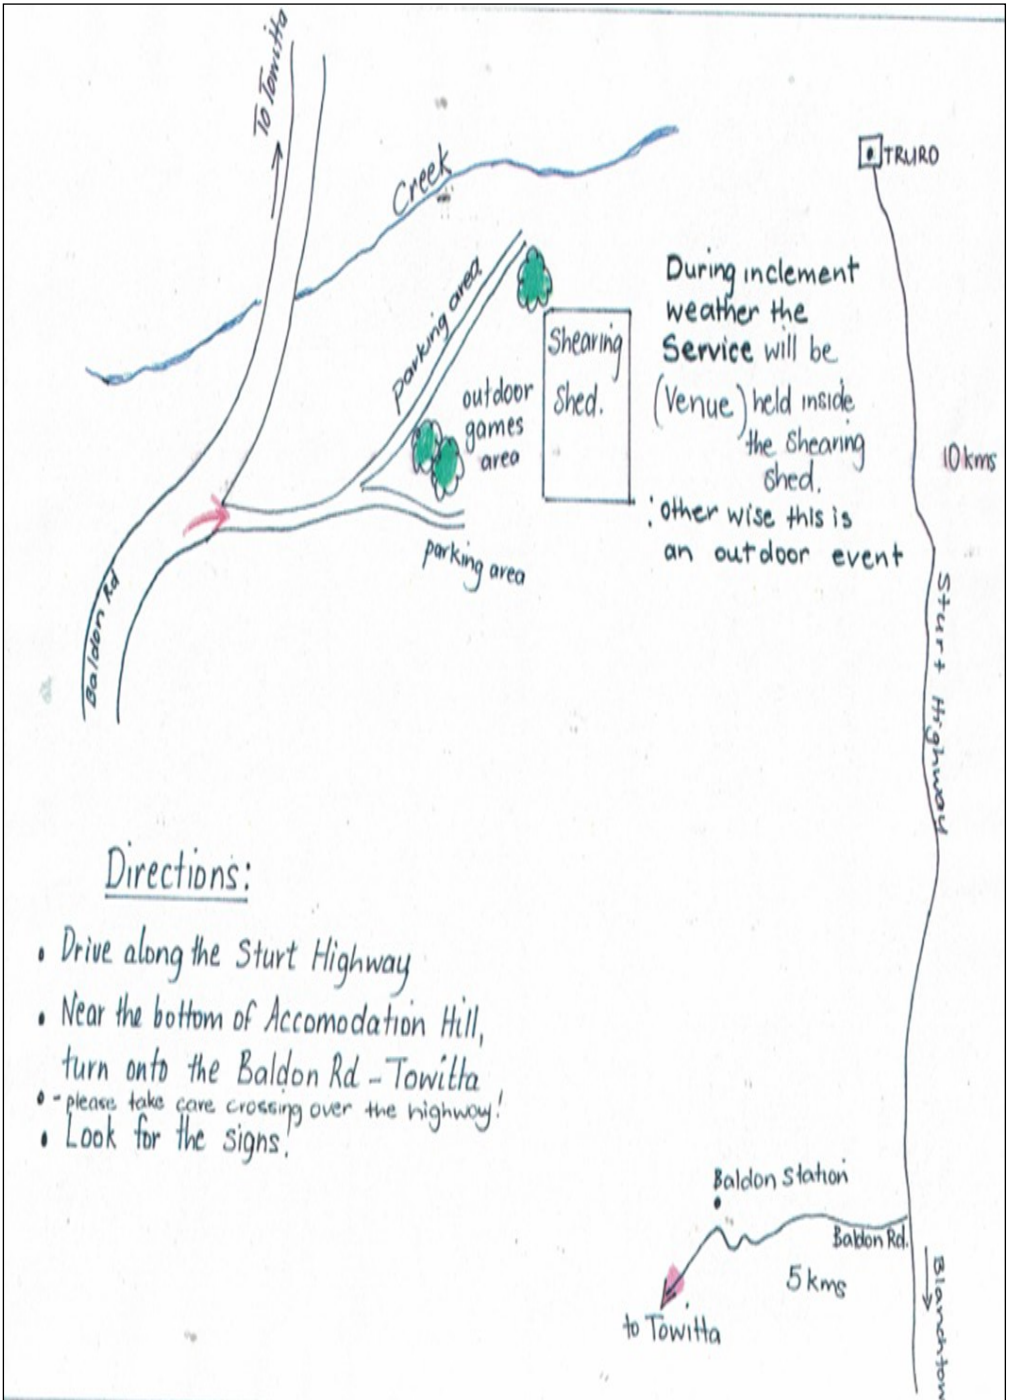 To Towitta
Creek
TRURO
Parking area
Shearing
Shed.
outdoor
games
area
During inclement
weather the
Service will be
(Venue) held inside
the Shearing
Shed.
: other wise this is
an outdoor event
10 kms
parking area
Baldon Rd
Sturt Highway
Directions:
• Drive along the Sturt Highway
• Near the bottom of Accomodation Hill,
turn onto the Baldon Rd - Towitta
• - please take care crossing over the highway!
• Look for the signs!
Baldon Station
Baldon Rd.
5 kms
to Towitta
Blanchtown